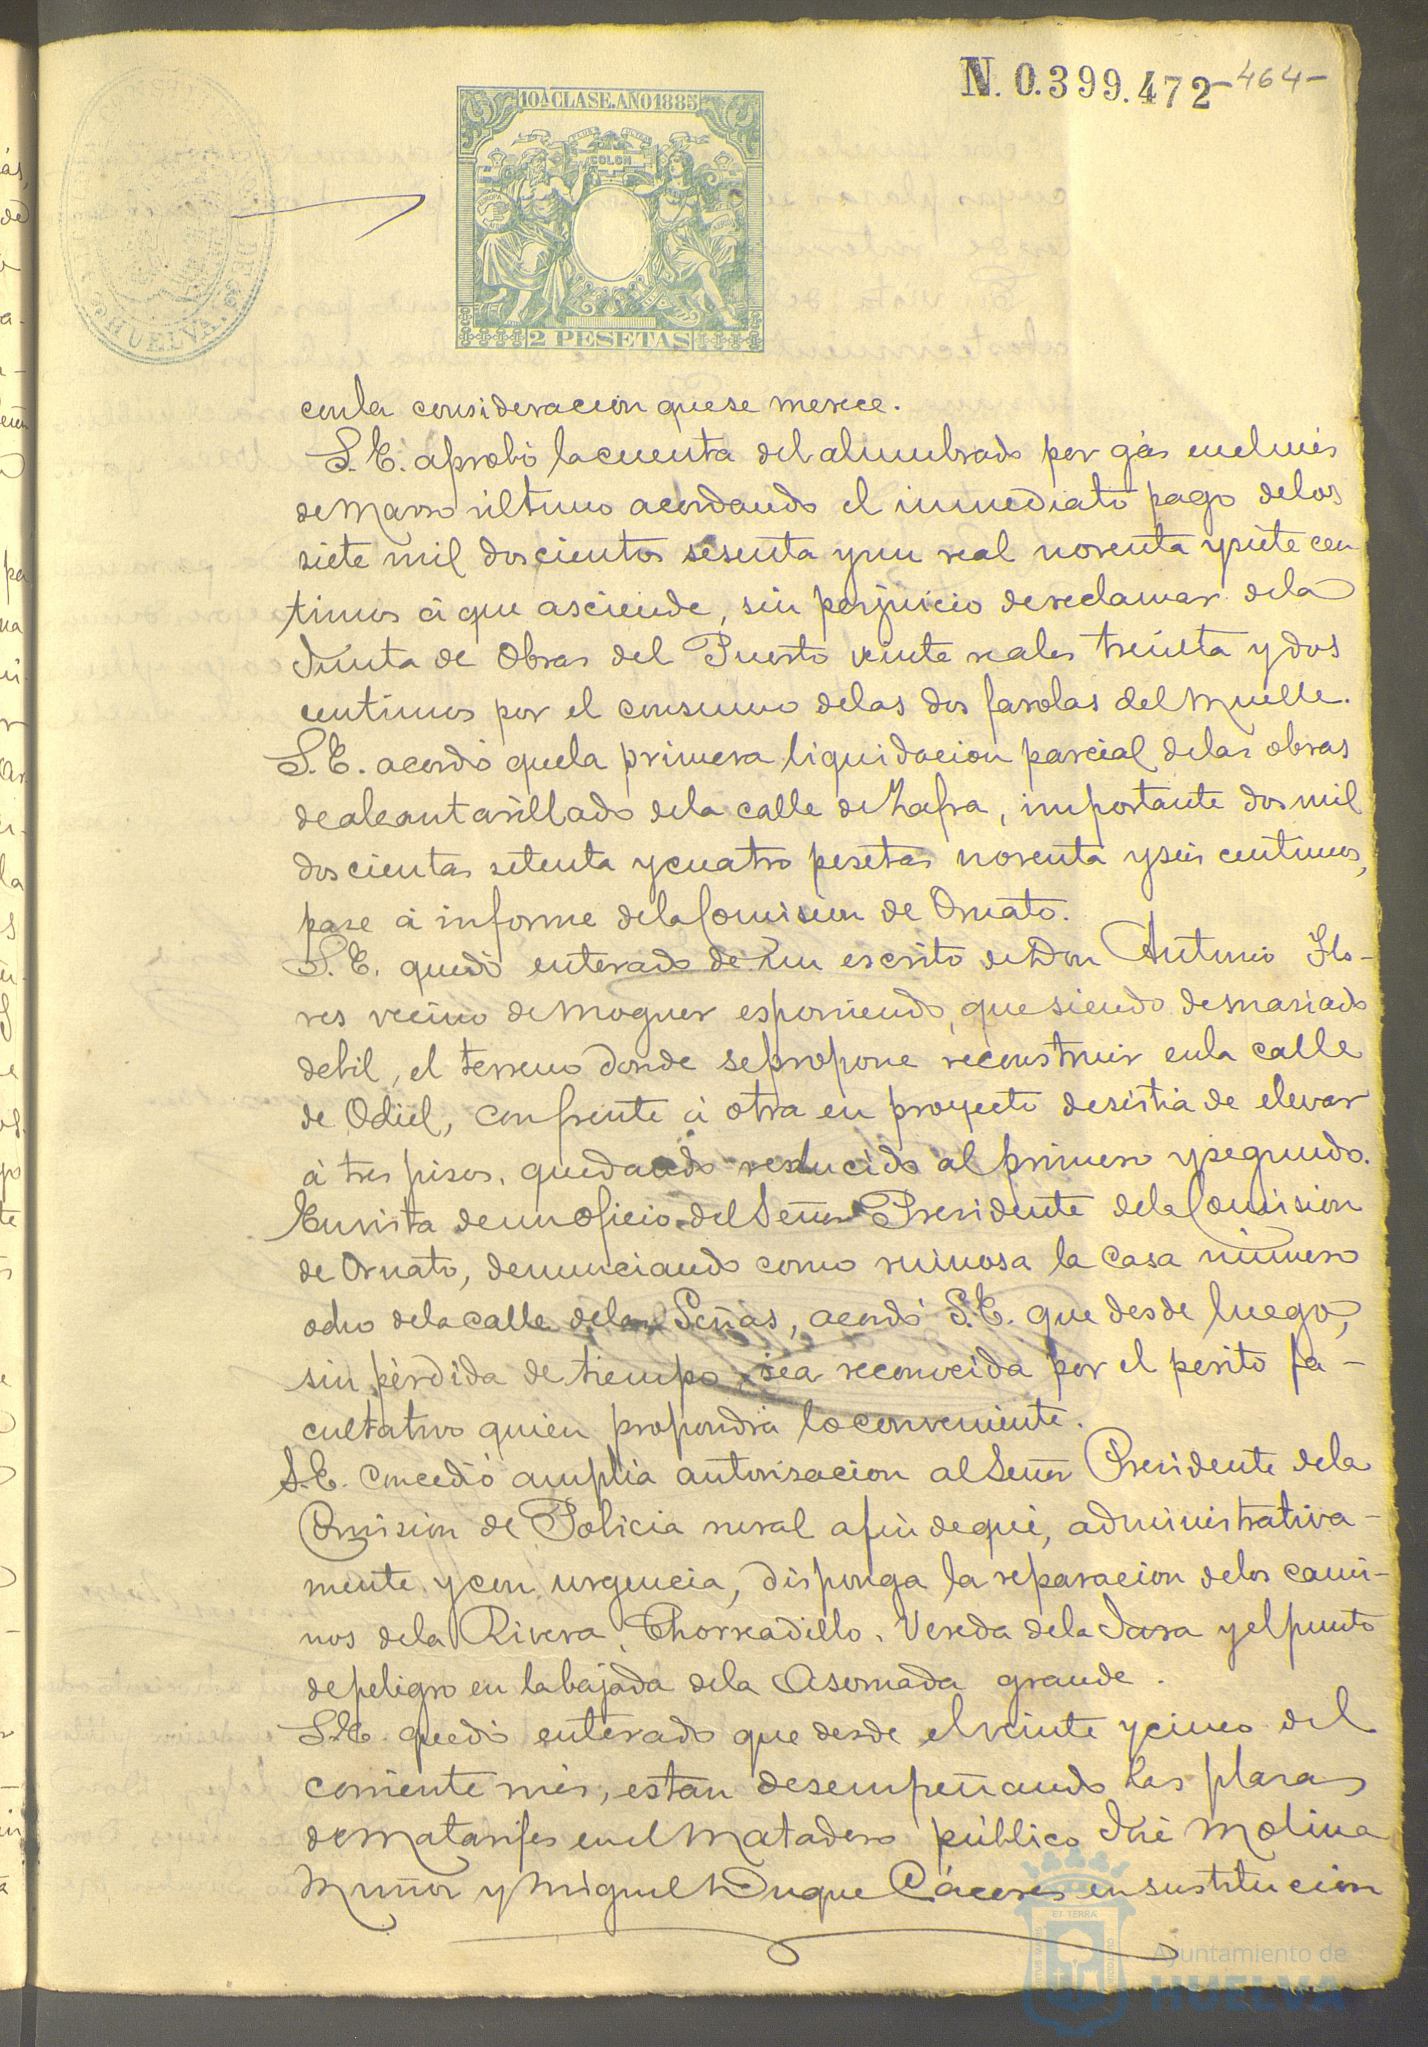 N. 0.399.472 -464-
10A CLASE. AÑO 1885
PLUS ULTRA
COLON
EUROPA
2 PESETAS
HUELVA
con la consideracion que se merece.
S. E. aprobó la cuenta del alumbrado por gás en el mes
de Marzo último acordando el inmediato pago de los
siete mil doscientos sesenta y un real noventa y siete cen
timos á que asciende, sin perjuicio de reclamar de la
Junta de Obras del Puerto veinte reales treinta y dos
centimos por el consumo de las dos farolas del Muelle.
S. E. acordó que la primera liquidacion parcial de las obras
de alcantarillado de la calle de Zafra, importante dos mil
doscientas setenta y cuatro pesetas noventa y seis centimos,
pase á informe de la Comision de Ornato.
S. E. quedó enterado de un escrito de Don Antonio Flo-
res vecino de Moguer esponiendo, que siendo demasiado
debil, el terreno donde se propone reconstruir en la calle
de Odiel, con frente á otra en proyecto desistia de elevar
á tres pisos, quedando reducido al primero y segundo.
En vista de un oficio del Señor Presidente de la Comision
de Ornato, denunciando como ruinosa la casa número
ocho de la calle de las Peñas, acordó S. E. que desde luego,
sin pérdida de tiempo, sea reconocida por el perito fa-
cultativo quien propondrá lo conveniente.
S. E. concedió amplia autorizacion al Señor Presidente de la
Comision de Policia rural a fin de que, administrativa-
mente y con urgencia, disponga la reparacion de los cami-
nos de la Rivera, Chorreadillo, Vereda de la Jara y el punto
de peligro en la bajada de la Asomada grande.
S. E. quedó enterado que desde el veinte y cinco del
corriente mes, estan desempeñando las plazas
de Matarifes en el Matadero público José Molina
Muñoz y Miguel Duque Cáceres en sustitucion
Ayuntamiento de
HUELVA